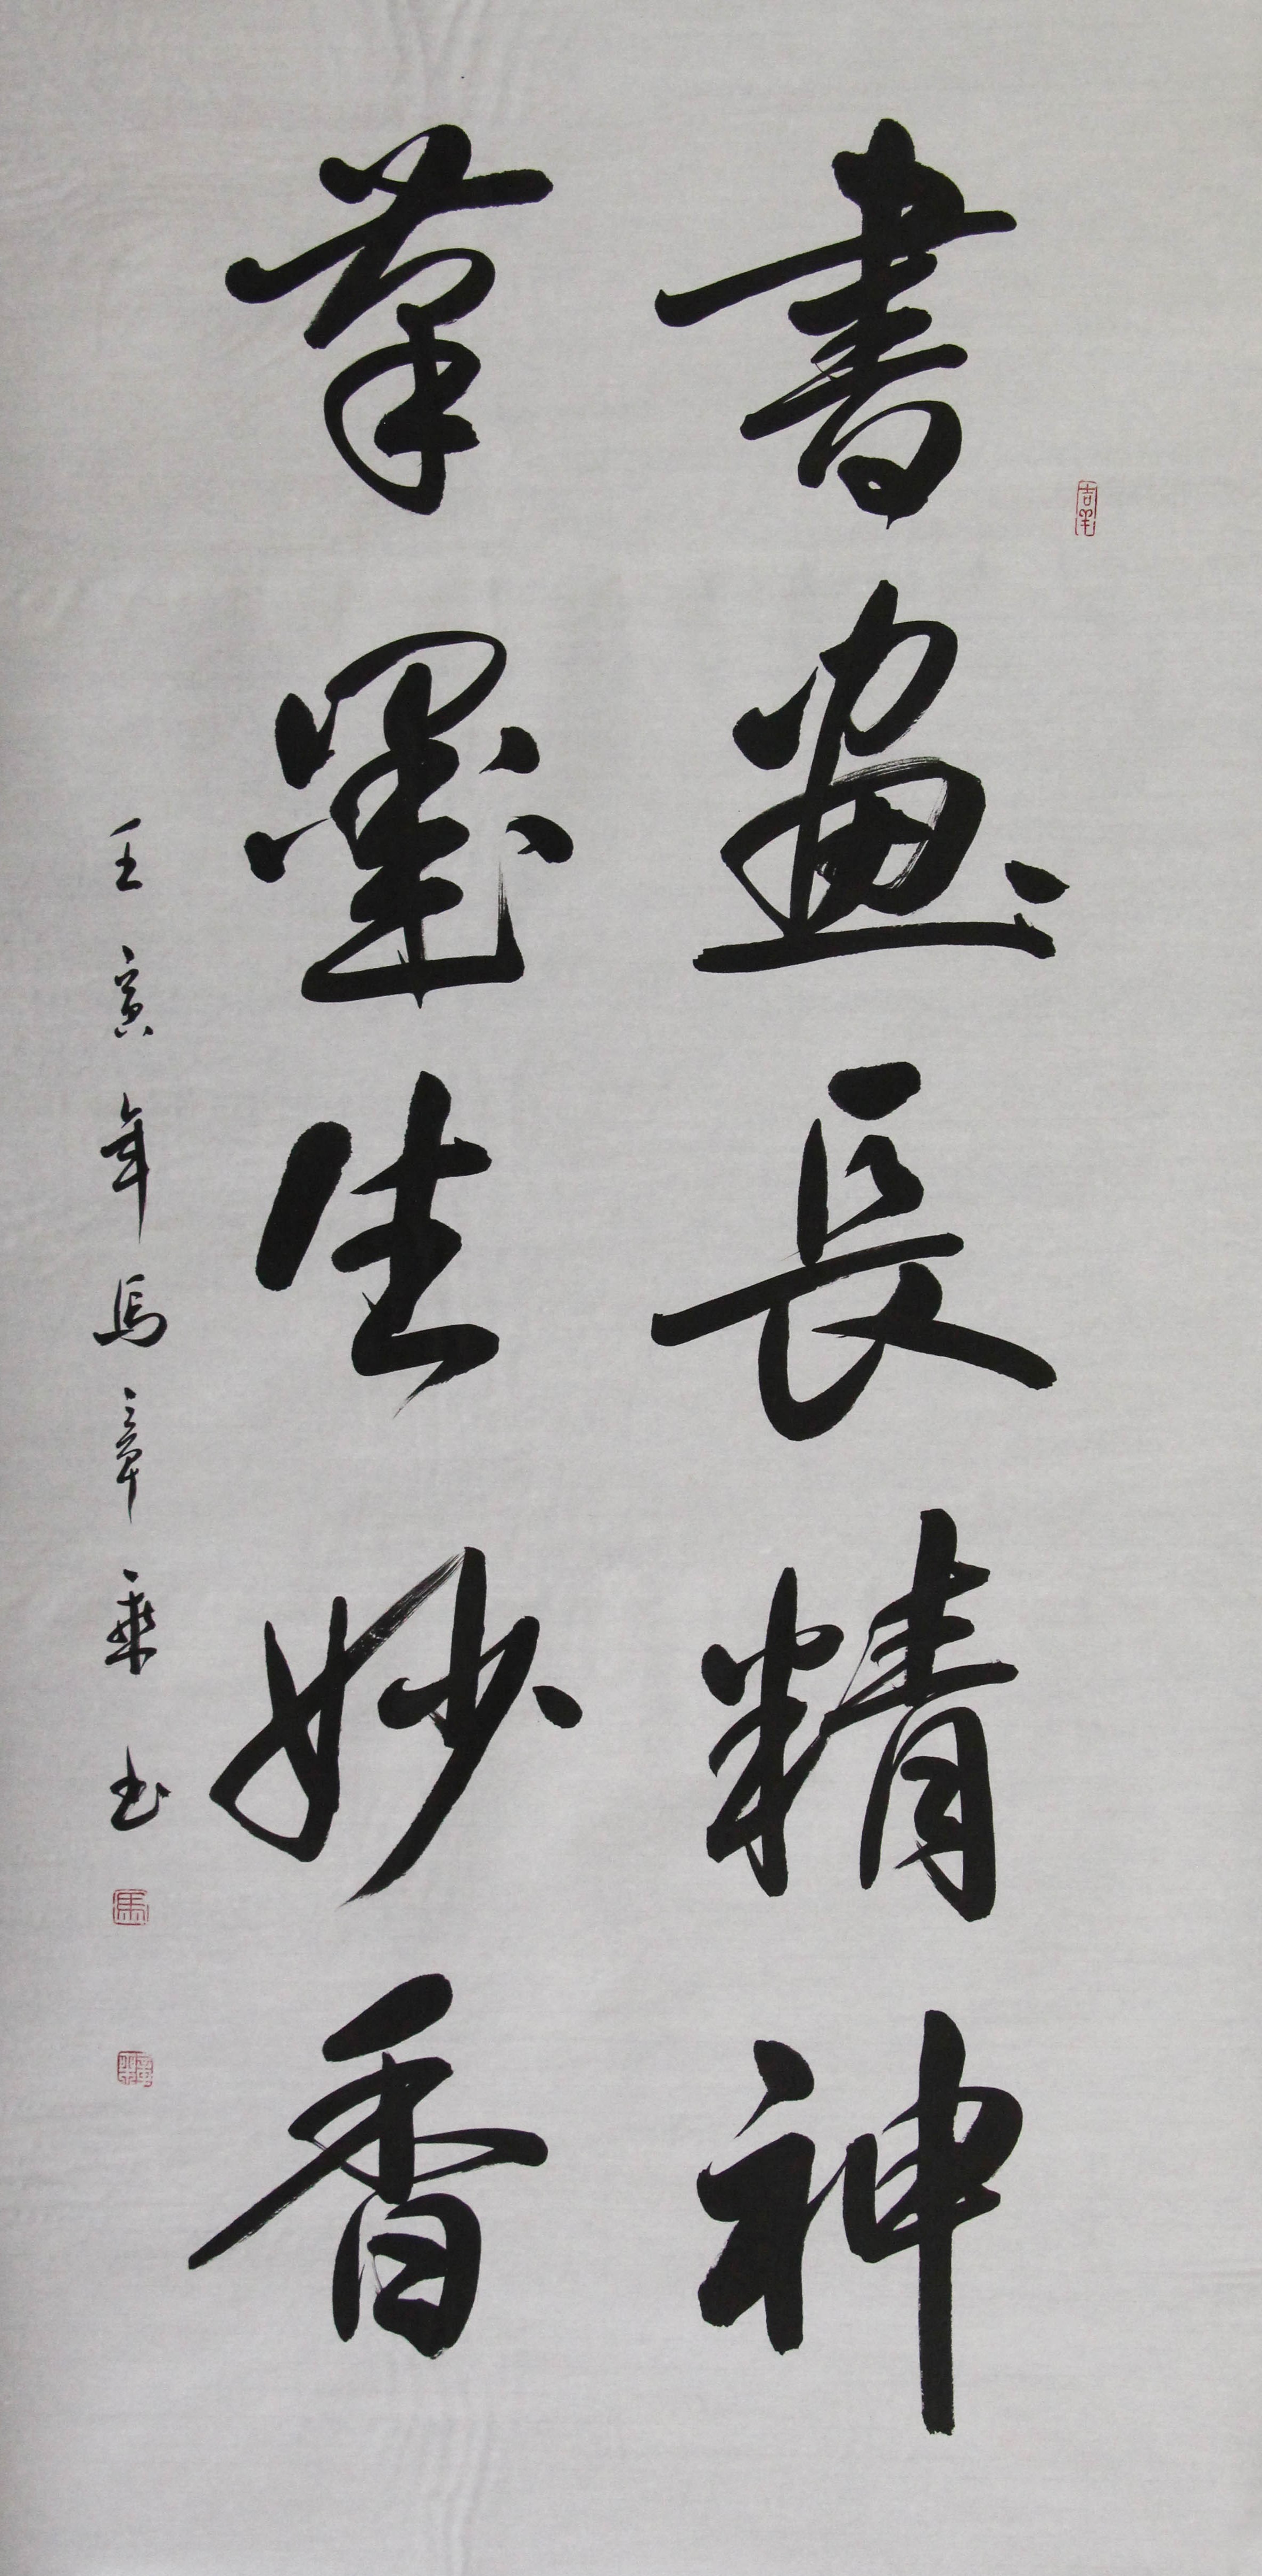 書畫長精神
筆墨生妙香
壬寅年馬章乘书
吉羊
馬